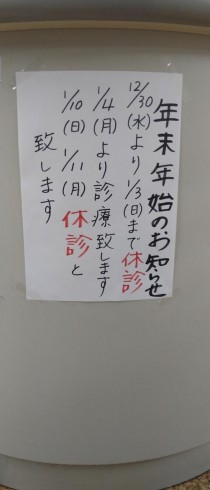 年末年始のお知らせ
12/30(水)より1/3(日)まで休診
1/4(月)より診療致します
1/10(日)1/11(月)休診と
致します